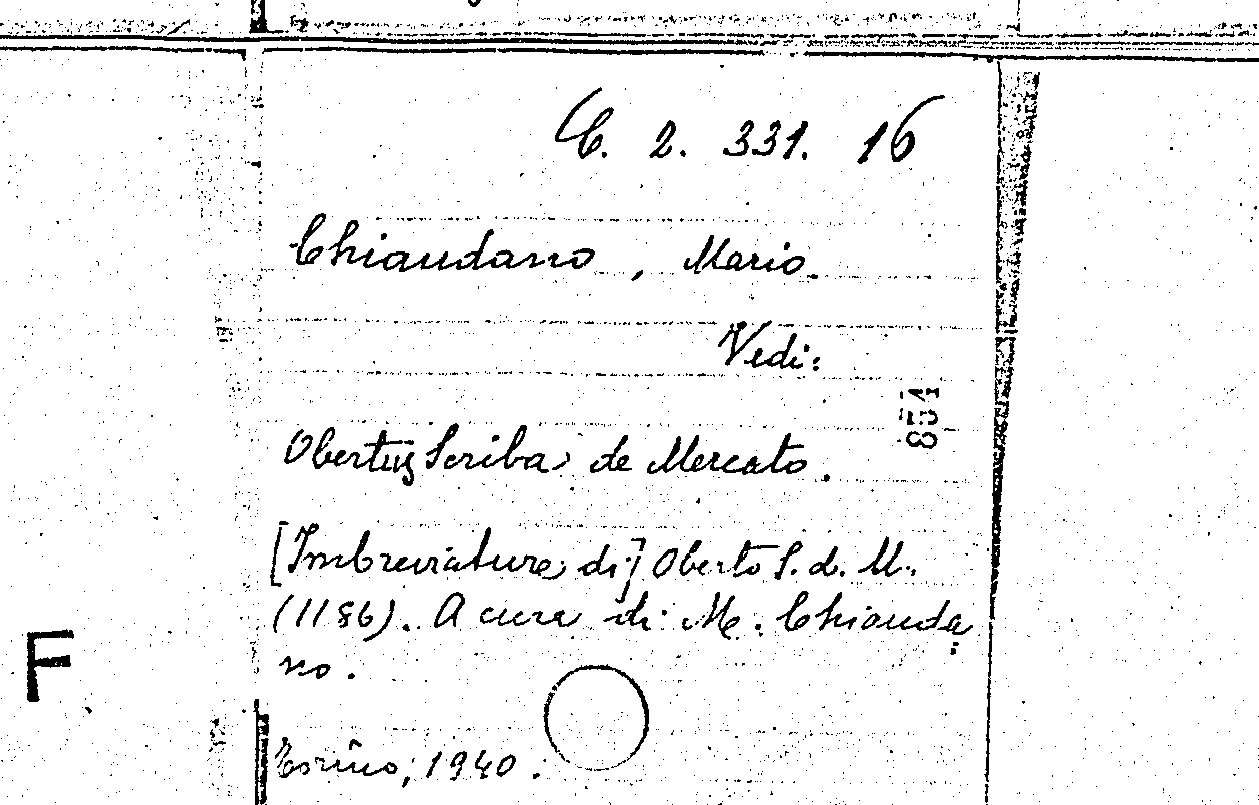 C. 2. 331. 16
Chiaudano, Mario.
Vedi:
854
Obertus Scriba de Mercato.
[Imbreviature di] Oberto S. d. M.
(1186). A cura di M. Chiauda
no.
F
Torino, 1940.